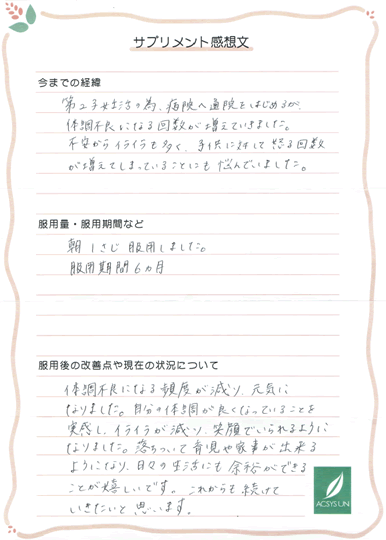 サプリメント感想文
今までの経緯
第2子妊活の為、病院へ通院をはじめるが、
体調不良になる回数が増えていきました。
不安からイライラも多く、子供に対して怒る回数
が増えてしまっていることにも悩んでいました。
服用量・服用期間など
朝 1さじ 服用しました。
服用期間 6ヵ月
服用後の改善点や現在の状況について
体調不良になる頻度が減り、元気に
なりました。自分の体調が良くなっていることを
実感し、イライラが減り、笑顔でいられるように
なりました。落ちついて育児や家事が出来る
ようになり、日々の生活にも余裕ができる
ことが嬉しいです。これからも続けて
いきたいと思います。
ACSYS UN